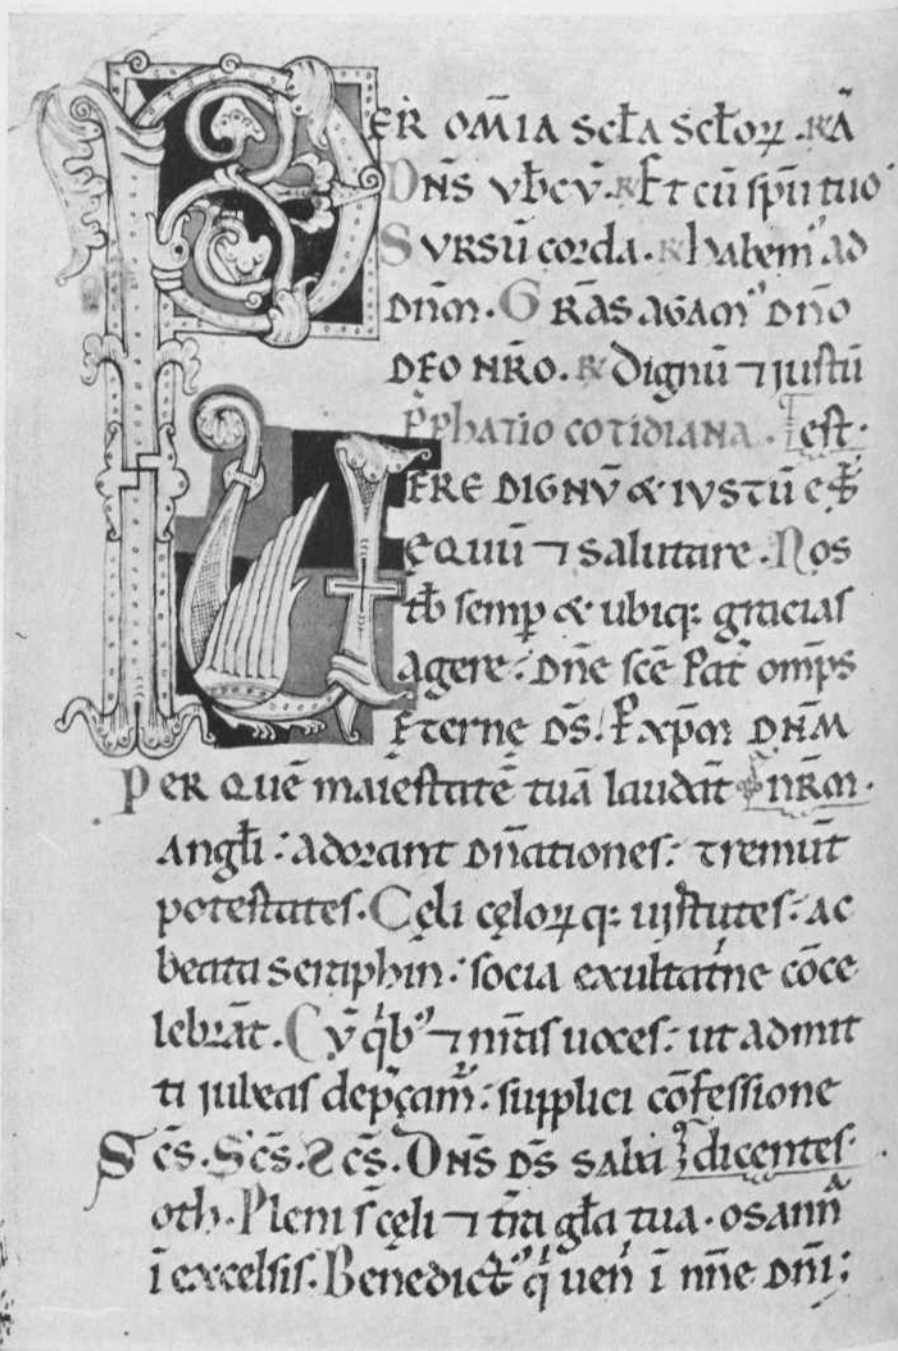 PER OM̄IA SCŁA SCŁOꝜ. ℟ AM̄
DN̄S VB̄CV̄. ℟ Et cū sp̄u tuo
SVRSŪ corda. ℟ habem᾿ ad
Dn̄m. GRĀS AGAM᾿ DN̄O
DEO NR̄O. ℟ Dignū ⁊ justū
P̄phatio cotidiana. est.
VERE DIGNV̄ & IVSTŪ
ęquū ⁊ salutare. Nos
tƀ semꝑ & ubiq: gracias
agere: Dn̄e sc̄e Pat̄ om̄ps
Eterne D̄S. P xp̄m DN̄M
PER quē maiestatē tuā laudāt nr̄m.
Angłi: adorant Dn̄ationes: tremūt
potestates. Cęli cęloꝝq: uirtutes: ac
beata seraphin: socia exultatͥne cōce
lebrāt. Cv̄ qͥb᾿ ⁊ nr̄as uoces: ut admit
ti jubeas dep̄cam᾿: supplici cōfessione
Sc̄s. Sc̄s. Sc̄s. DN̄S D̄S saba dicentes.
oth. Pleni s̄ cęli ⁊ tr̄a gła tua. osann̄
ī excelsis. Benedict᾿ qͥ uenͥ ī nn̄e Dn̄i;